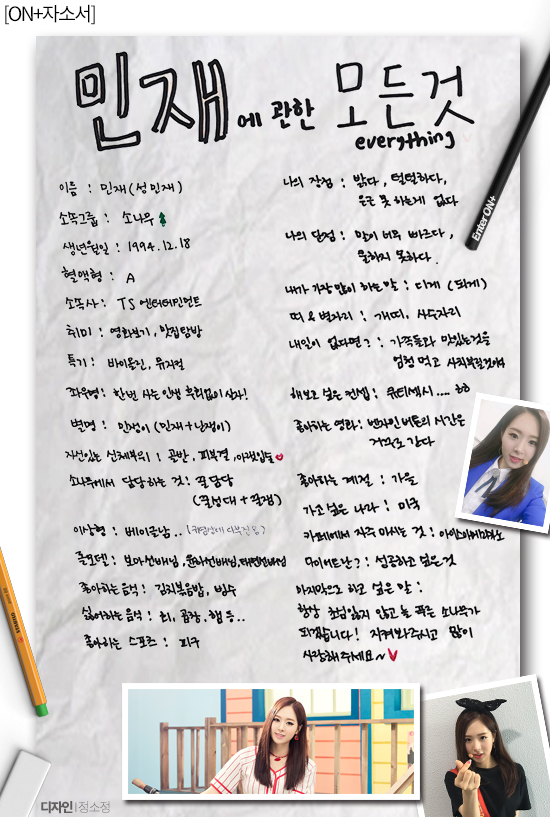 [ON+자소서]
민재에 관한 모든것
everything
Enter ON+
이름 : 민재(성민재)
소속그룹 : 소나무
생년월일 : 1994.12.18
혈액형 : A
소속사 : TS 엔터테인먼트
취미 : 영화보기, 맛집탐방
특기 : 바이올린, 뮤지컬
좌우명 : 한번 사는 인생 후회없이 살자!
별명 : 민쟁이 (민재+난쟁이)
자신있는 신체부위 : 골반, 피부결, 아랫입술
소나무에서 담당하는 것 : 꾹담당
이상형 : 베이글남..
롤모델 : 보아선배님, 윤하선배님, 태연선배님
좋아하는 음식 : 김치볶음밥, 빙수
싫어하는 음식 : 회, 곱창, 햄 등..
좋아하는 스포츠 : 피구
나의 장점 : 밝다, 털털하다,
숨은 못하는게 없다
나의 단점 : 말이 너무 빠르다,
참지 못하다.
내가 가장 많이 하는 말 : 디게 (되게)
띠 & 별자리 : 개띠, 사수자리
내일이 없다면? : 가족들과 맛있는것을
엄청 먹고 사치부릴것이다
해보고 싶은 컨셉 : 큐티섹시.... ㅎㅎ
좋아하는 영화 : 벤자민 버튼의 시간은
거꾸로 간다
좋아하는 계절 : 가을
가고 싶은 나라 : 미국
카페에서 자주 마시는 것 : 아이스아메리카노
다이어트란? : 성공하고 싶은것
마지막으로 하고 싶은 말 :
항상 초심잃지 않고 늘 푸른 소나무가
되겠습니다! 지켜봐주시고 많이
사랑해 주세요~
디자인 | 정소정